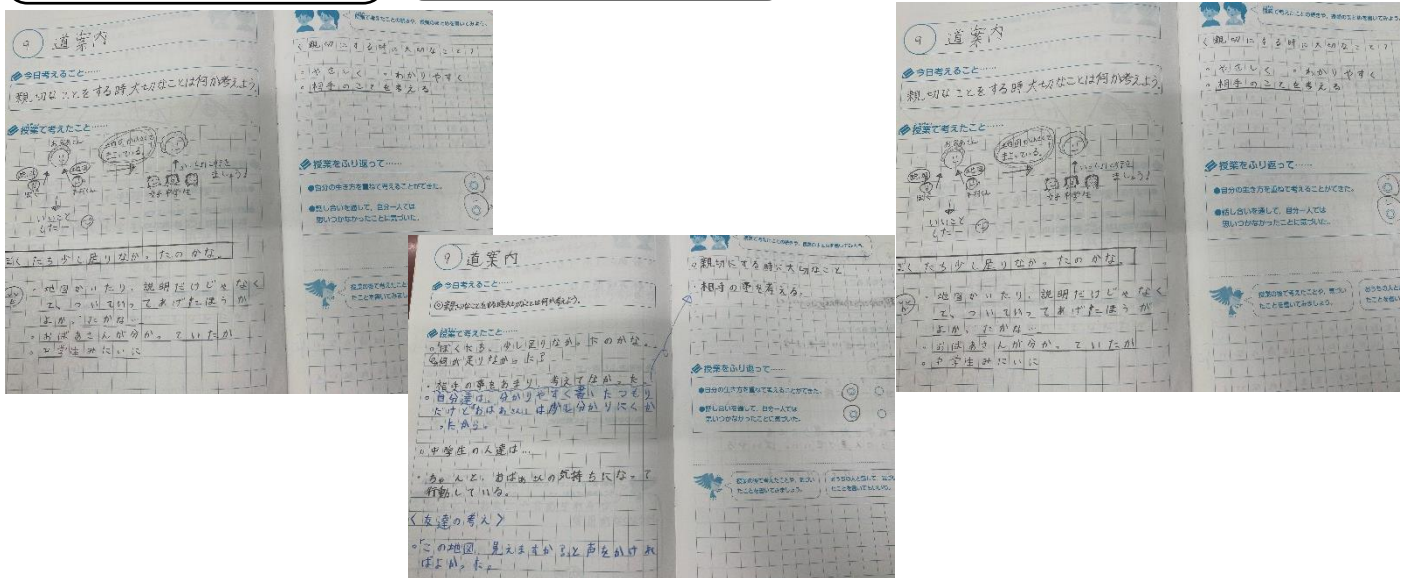 9 道案内
今日考えること……
親切なことをする時大切なことは何か考えよう。
授業で考えたこと……
おばあさん
地図が小さくて
まよっている。
いいこと
した!
ぼくたち少し足りなかったのかな。
・地図かいたり、説明だけじゃなく
て、ついていってあげたほうが
よかったかな…
・おばあさんが分かっていたか
・中学生みたいに
〈親切にする時に大切なこと〉
・やさしく ・わかりやすく
・相手のことを考える
授業をふり返って……
●自分の生き方を重ねて考えることができた。
●話し合いを通して、自分一人では
思いつかなかったことに気づいた。
9 道案内
今日考えること……
親切なことをする時大切なことは何か考えよう。
授業で考えたこと……
ぼくたち、少し足りなかったのかな。
何が足りなかった?
・相手の事をあまり、考えてなかった。
自分達は、分かりやすく書いたつもり
だけどおばあさんには分かりにくか
ったから。
中学生の人達は…
・ちゃんと、おばあさんの気持ちになって
行動している。
〈友達の考え〉
「この地図、見えますか?」と声をかけれ
ばよかった。
親切にする時に大切なこと
・相手の事を考える。
授業をふり返って……
●自分の生き方を重ねて考えることができた。
●話し合いを通して、自分一人では
思いつかなかったことに気づいた。
9 道案内
今日考えること……
親切なことをする時大切なことは何か考えよう。
授業で考えたこと……
おばあさん
地図が小さくて
まよっている。
いいこと
した!
ぼくたち少し足りなかったのかな。
・地図かいたり、説明だけじゃなく
て、ついていってあげたほうが
よかったかな…
・おばあさんが分かっていたか
・中学生みたいに
〈親切にする時に大切なこと〉
・やさしく ・わかりやすく
・相手のことを考える
授業をふり返って……
●自分の生き方を重ねて考えることができた。
●話し合いを通して、自分一人では
思いつかなかったことに気づいた。